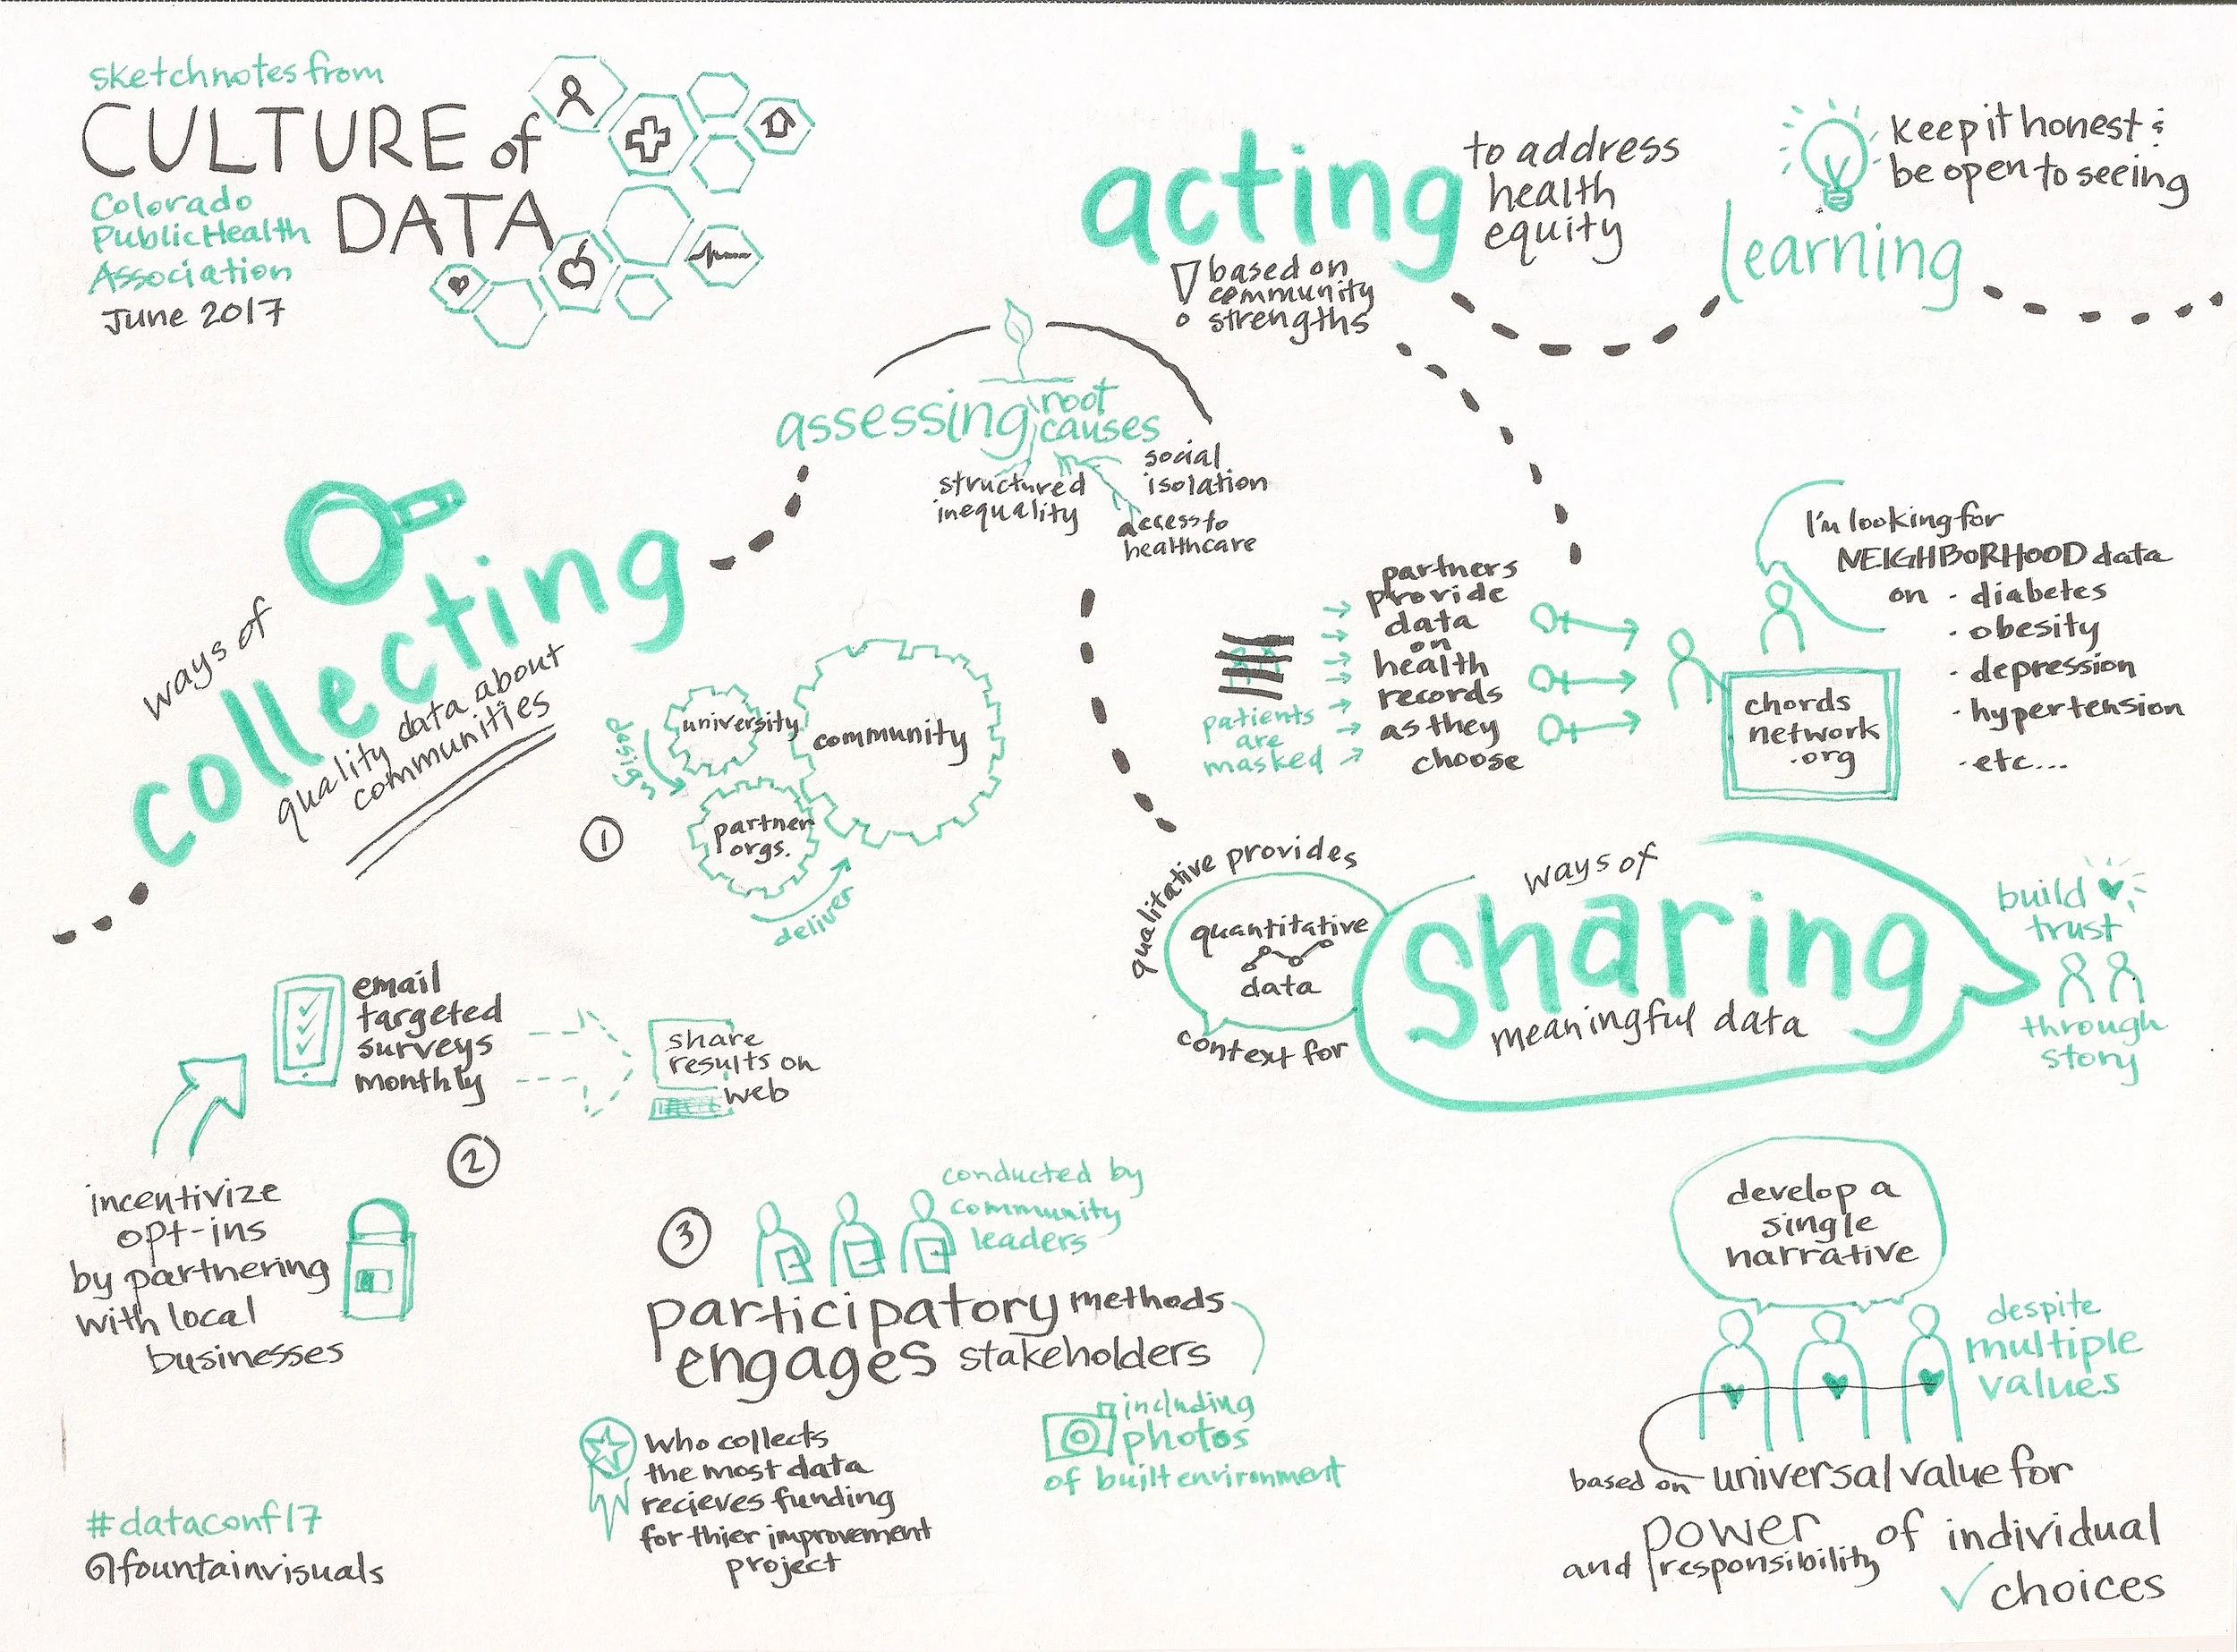 sketchnotes from
CULTURE of
DATA
Colorado
Public Health
Association
June 2017
acting
to address
health
equity
based on
community
strengths
keep it honest &
be open to seeing
learning
assessing root
causes
structured
inequality
social
isolation
access to
healthcare
ways of
collecting
quality data about
communities
1
design
university
community
partner
orgs.
deliver
patients
are
masked
partners
provide
data
on
health
records
as they
choose
chords
network
.org
I'm looking for
NEIGHBORHOOD data
on · diabetes
· obesity
· depression
· hypertension
· etc...
qualitative provides
quantitative
data
context for
ways of
sharing
meaningful data
build
trust
through
story
email
targeted
surveys
monthly
share
results on
web
2
incentivize
opt-ins
by partnering
with local
businesses
3
conducted by
community
leaders
participatory methods
engages stakeholders
including
photos
of built environment
who collects
the most data
recieves funding
for thier improvement
project
develop a
single
narrative
despite
multiple
values
based on universal value for
power of individual
and responsibility
choices
#dataconf17
@fountainvisuals